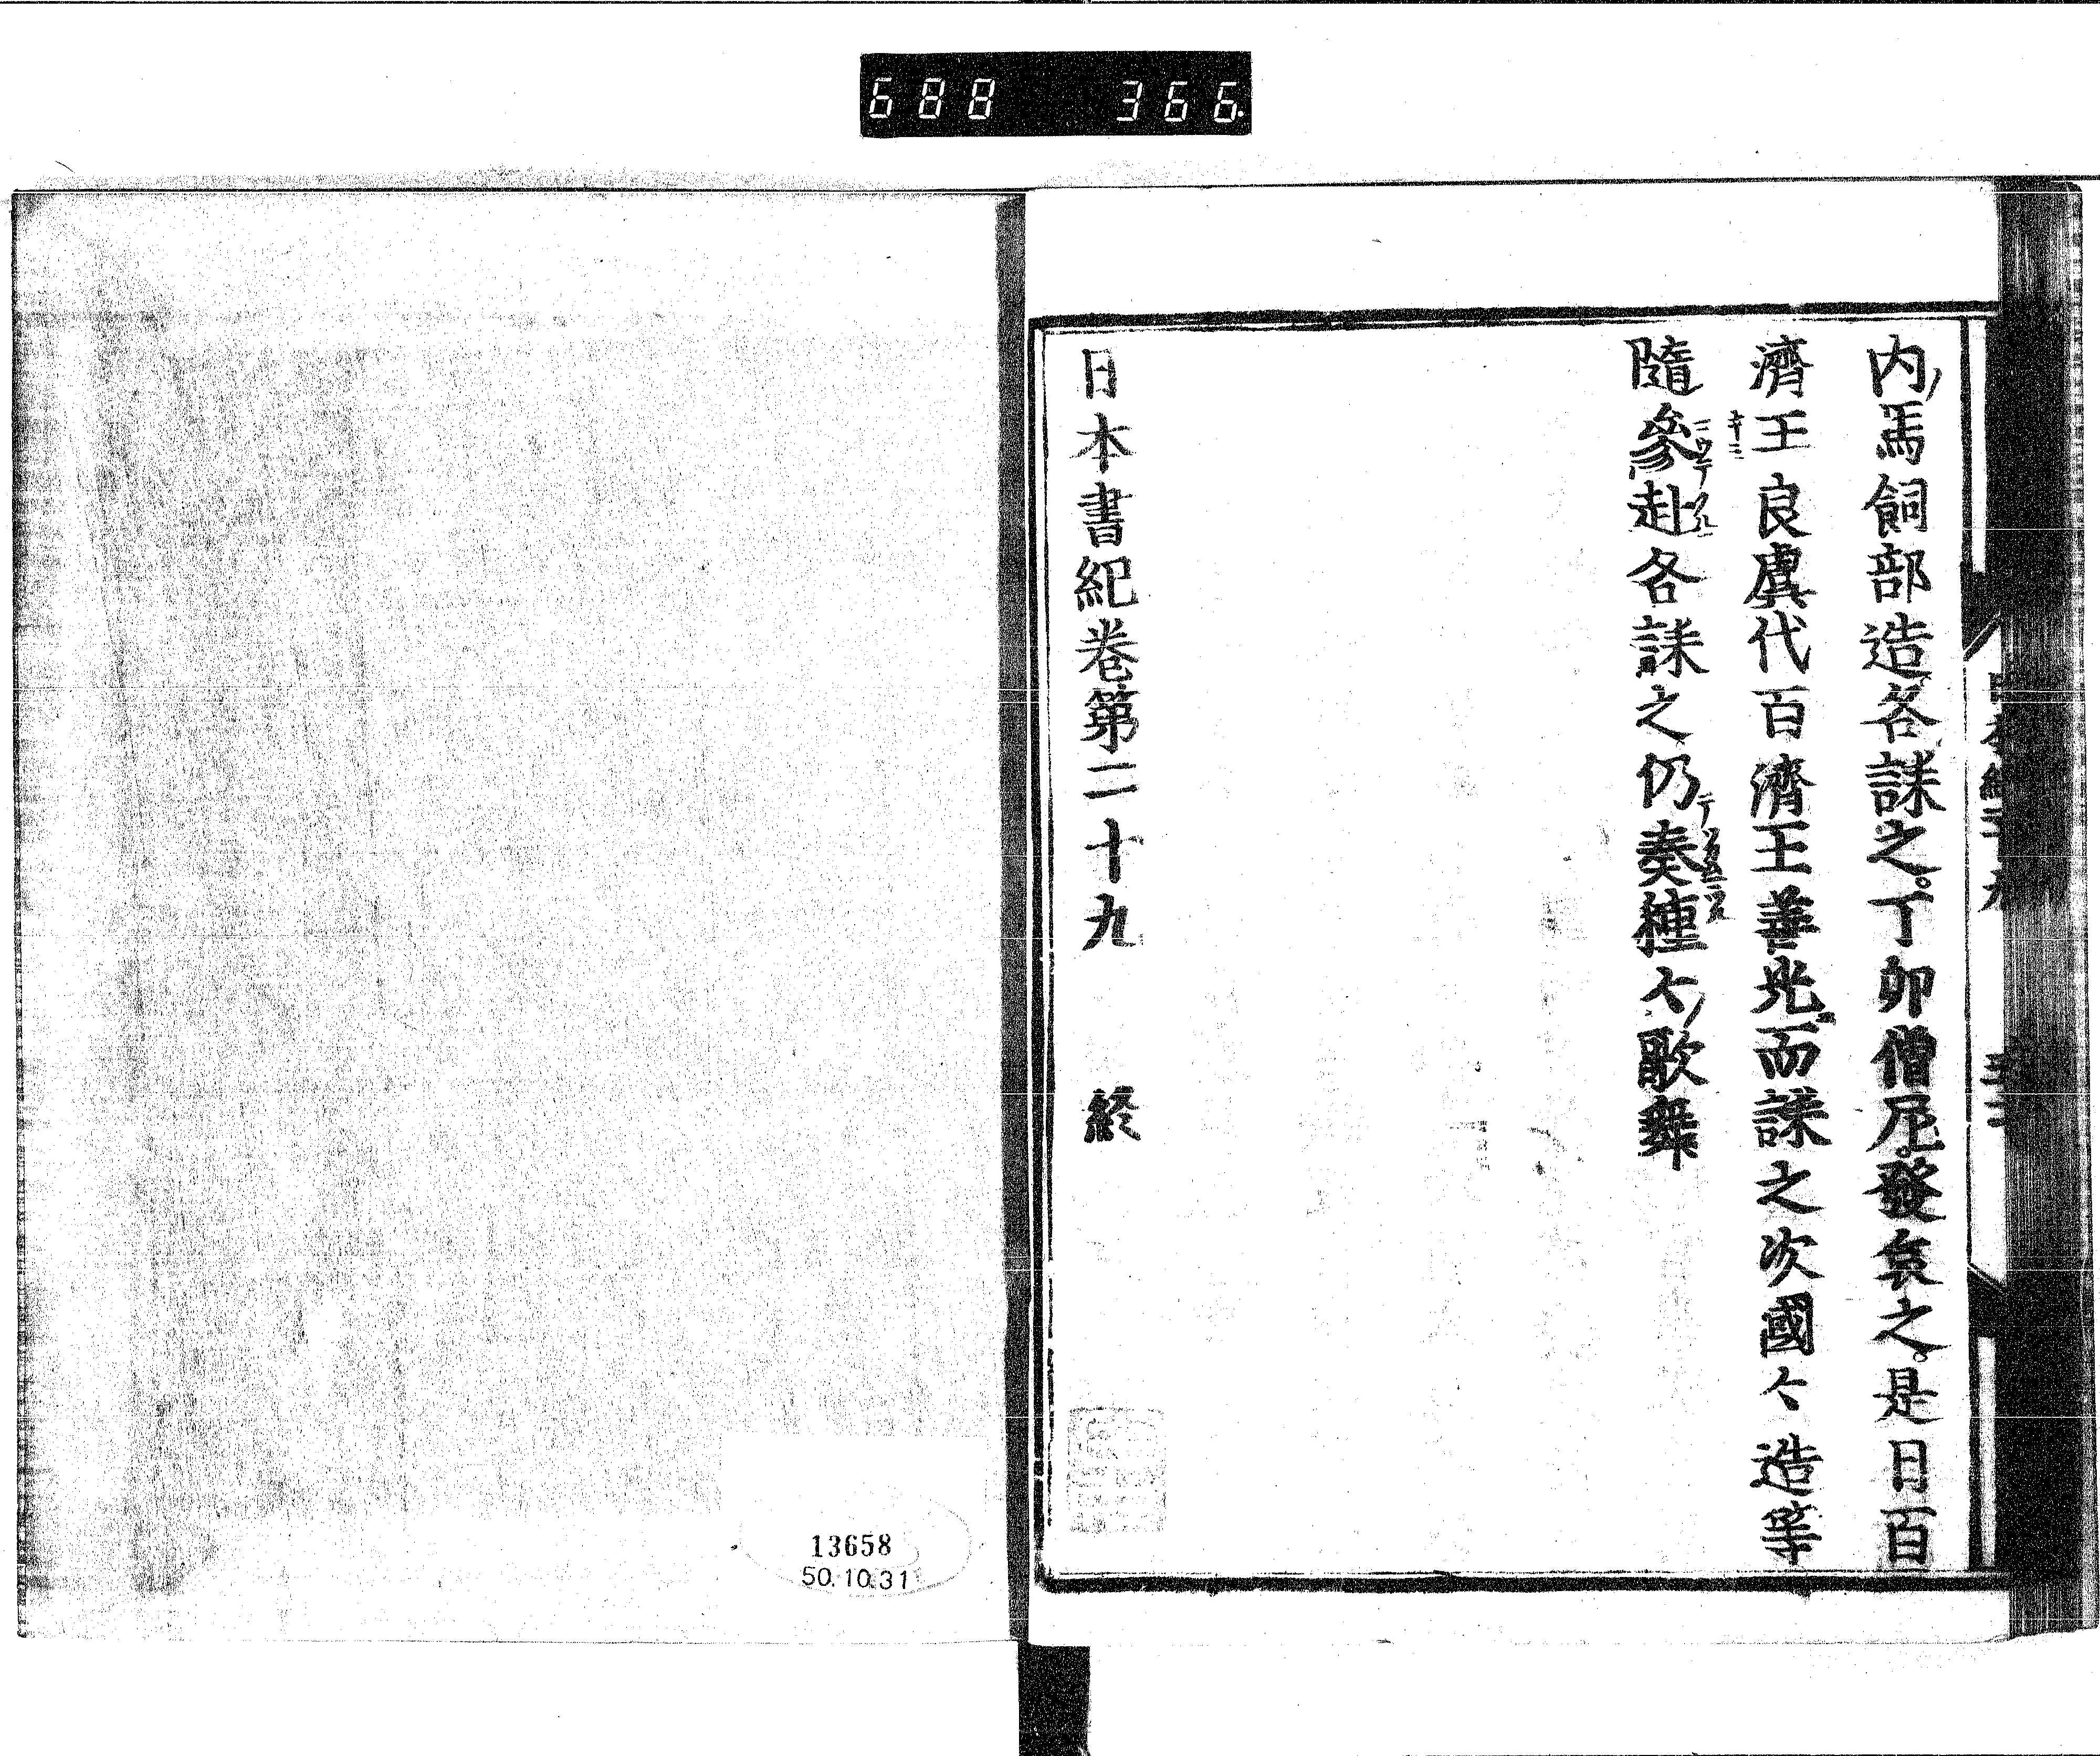 688 366.
内馬飼部造各誄之。丁卯僧尼。發哀之。是日百
濟王良虞代百濟王善光而誄之次國々造等
隨參赴各誄之仍奏種々歌儛
日本書紀卷第二十九 終
13658
50.10.31